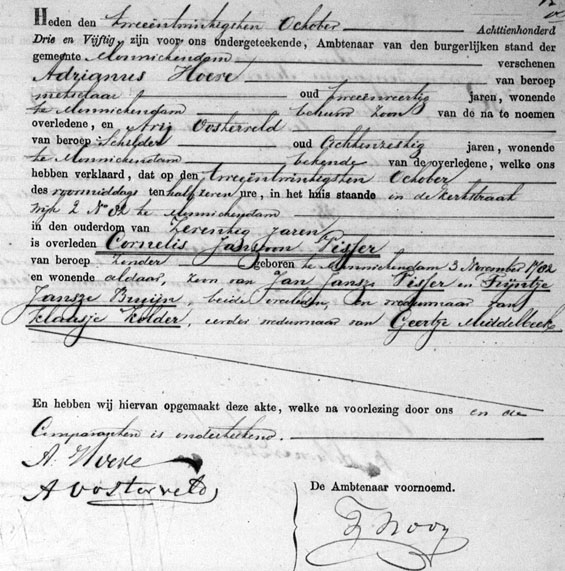 Heden den tweeëntwintigsten October Achttienhonderd
Drie en Vijftig zijn voor ons ondergeteekende, Ambtenaar van den burgerlijken stand der
gemeente Monnickendam verschenen
Adrianus Hoeve van beroep
metselaar oud tweeenveertig jaren, wonende
te Monnickendam behuwd Zoon van de na te noemen
overledene, en Arij Oosterveld
van beroep Schilder oud Achtenzestig jaren, wonende
te Monnickendam bekende van de overledene, welke ons
hebben verklaard, dat op den tweeëntwintigsten October
des voormiddags ten half zeven ure, in het huis staande in de Kerkstraat
Wijk 2 No 82 te Monnickendam
in den ouderdom van Zeventig Jaren
is overleden Cornelis Janszoon Visser
van beroep Zonder geboren te Monnickendam 3 November 1782
en wonende aldaar, zoon van Jan Jansz Visser en Trijntje
Jansze Bruijn, beide overleden, en weduwnaar van
Klaasje Kolder, eerder weduwnaar van Geertje Middelbeek
En hebben wij hiervan opgemaakt deze akte, welke na voorlezing door ons en de
Comparanten is onderteekend.
A. Hoeve
A Oosterveld
De Ambtenaar voornoemd.